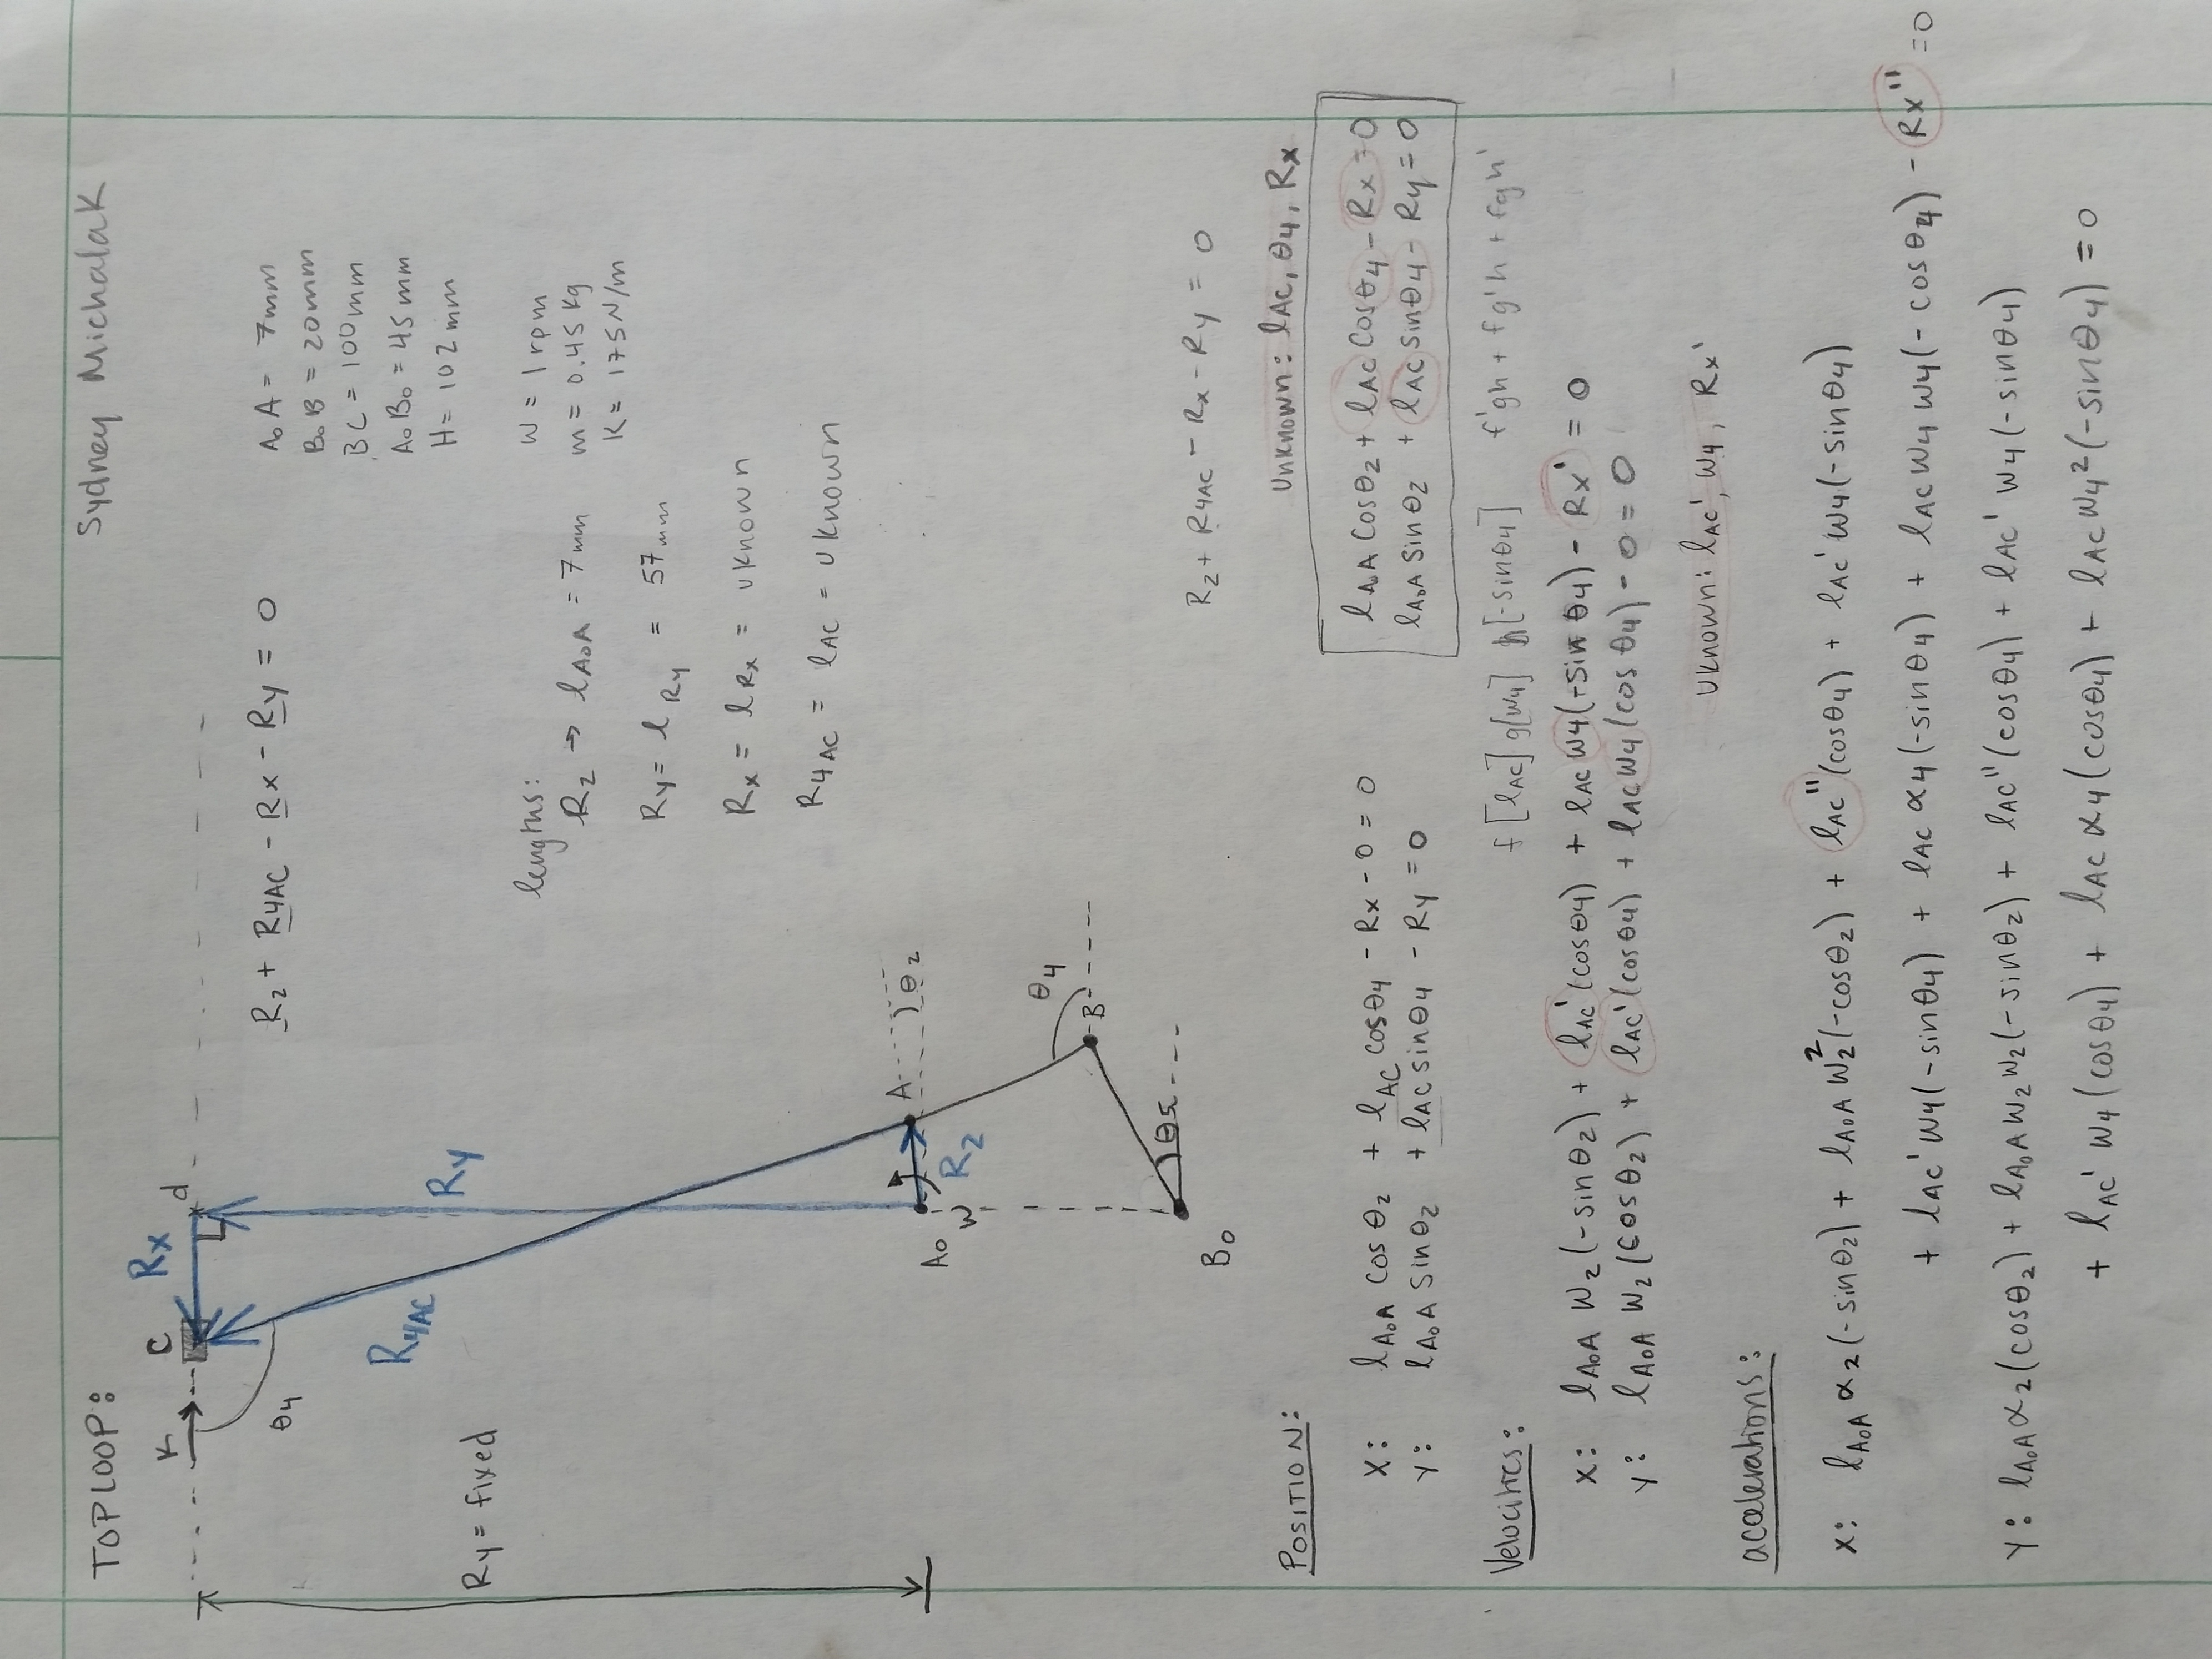 TOP LOOP:
Sydney Michalak
K
C
Rx
d
θ4
R2 + R4AC - Rx - Ry = 0
A0A = 7mm
B0B = 20mm
BC = 100mm
A0B0 = 45mm
H = 102mm
R4AC
Ry
Ry = fixed
lengths:
W = 1rpm
R2 → lA0A = 7mm
m = 0.45 kg
K = 175N/m
Ry = lRy = 57mm
Rx = lRx = uknown
R4AC = lAC = uknown
A0
A
θ2
W
R2
θ4
B
θ5
B0
R2 + R4AC - Rx - Ry = 0
Unknown: lAC, θ4, Rx
POSITION:
X: lA0A cosθ2 + lAC cosθ4 - Rx - 0 = 0
Y: lA0A sinθ2 + lAC sinθ4 - Ry = 0
lA0A cosθ2 + lAC cosθ4 - Rx = 0
lA0A sinθ2 + lAC sinθ4 - Ry = 0
Velocities:
f[lAC] g[w4] h[-sinθ4] f'gh + fg'h + fgh'
X: lA0A W2(-sinθ2) + lAC'(cosθ4) + lAC W4(-sin θ4) - Rx' = 0
Y: lA0A W2(cosθ2) + lAC'(cosθ4) + lAC W4(cos θ4) - 0 = 0
Uknown: lAC', W4, Rx'
accelerations:
X: lA0A α2(-sinθ2) + lA0A W2²(-cosθ2) + lAC''(cosθ4) + lAC' W4(-sinθ4)
+ lAC' W4(-sinθ4) + lAC α4(-sinθ4) + lAC W4 W4(-cosθ4) - Rx'' = 0
Y: lA0A α2(cosθ2) + lA0A W2 W2(-sinθ2) + lAC''(cosθ4) + lAC' W4(-sinθ4)
+ lAC' W4(cosθ4) + lAC α4(cosθ4) + lAC W4²(-sinθ4) = 0